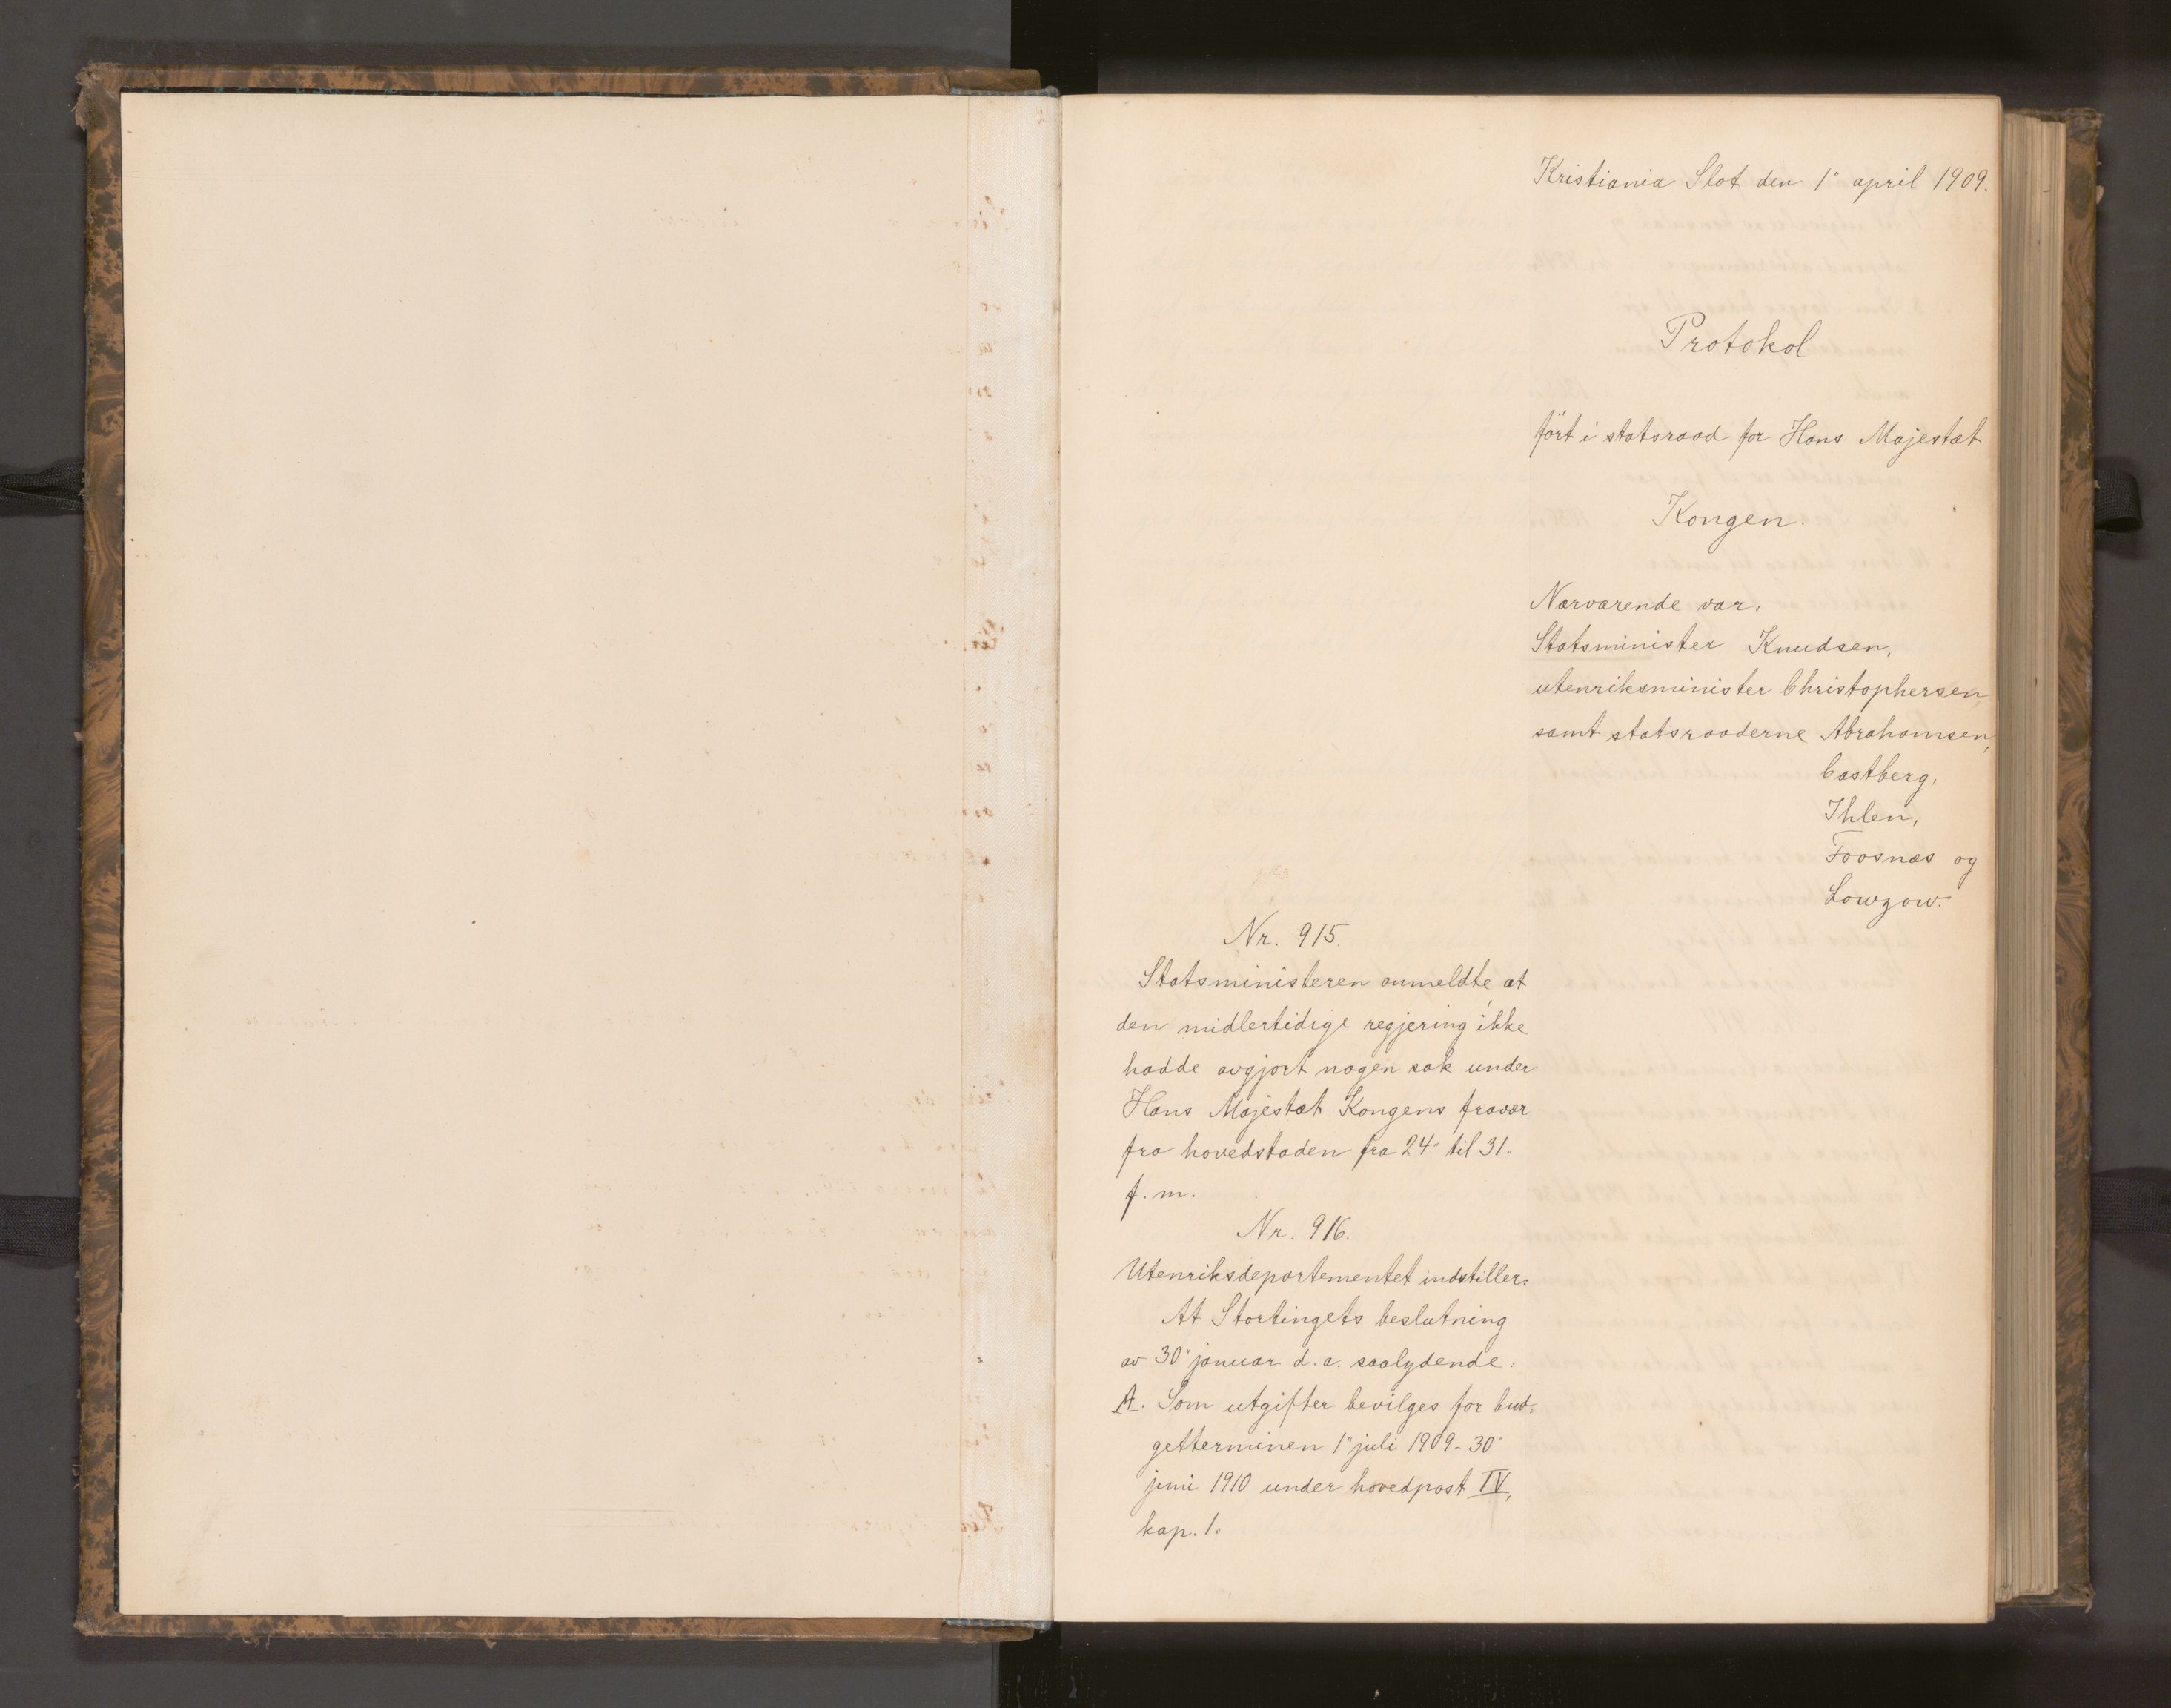 Kristiania Slot den 1" april 1909.
Protokol
ført i statsraad for Hans Majestæt
Kongen.
Nærværende var:
Statsminister Knudsen,
utenriksminister Christophersen,
samt statsraaderne Abrahamsen,
Castberg,
Ihlen,
Foosnæs og
Lowzow.
Nr. 915.
Statsministeren anmeldte, at
den midlertidige regjering ikke
hadde avgjort nogen sak under
Hans Majestæt Kongens fravær
fra hovedstaden fra 24" til 31.
f. m.
Nr. 916.
Utenriksdepartementet indstiller:
At Stortingets beslutning
av 30" januar d. a. saalydende:
A. Som utgifter bevilges for bud-
getterminen 1" juli 1909 - 30"
juni 1910 under hovedpost IV,
kap. 1: